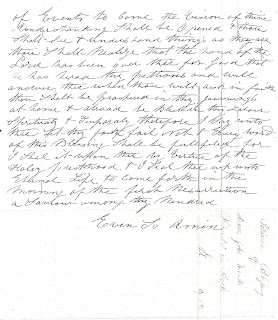 of Events to Come the Vision of thine
Understanding Shall be Opened & thou
Shalt See & Understand things as they are
thou Shalt Realize that the hand of the
Lord has been over thee for good that
he has heard thy petitions and will
answer thee when thou wilt ask in faith
thou Shalt be prospered in thy journeyings
at home & abroad be blessed in
Spiritualy & Temporaly therefore I Say unto
thee let thy faith fail not & Every word
of this Blessing Shall be fulfilled for
I Seal it upon thee by virtue of the
Holey Priesthood & I Seal thee up unto
Eternal Life to Come forth in the
Morning of the first Resurrection
a Saviour among thy Kindred
Even So Amen